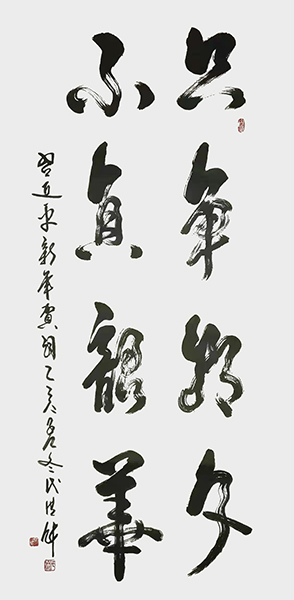 只争朝夕
不負韶華
习近平新年贺词乙亥